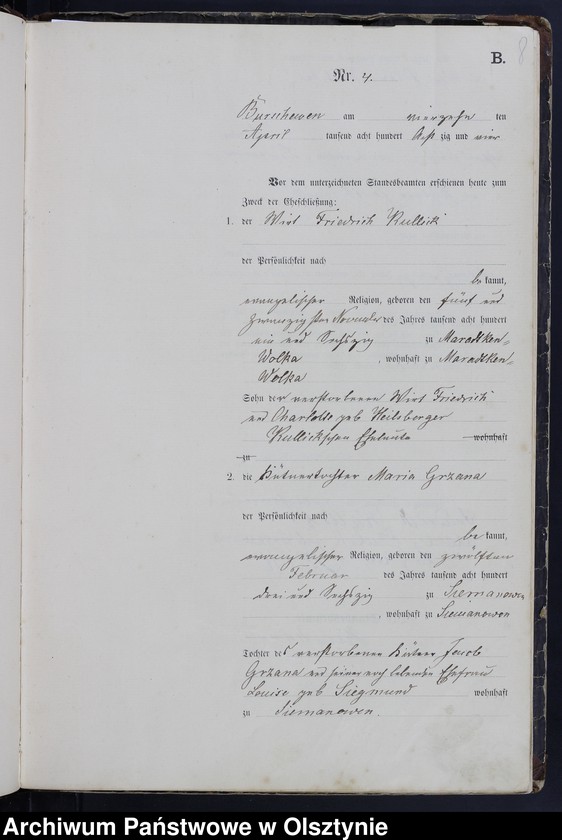 B. 8
Nr. 4.
am vierzehn ten
April tausend acht hundert Acht zig und vier
Vor dem unterzeichneten Standesbeamten erschienen heute zum
Zweck der Eheschließung:
1. der Wirt Friedrich Kullick
der Persönlichkeit nach
be kannt,
evangelischer Religion, geboren den fünf und
zwanzigsten November des Jahres tausend acht hundert
ein und Sechszig zu Maradtken-
Wolka , wohnhaft zu Maradtken-
Wolka
Sohn der verstorbenen Wirt Friedrich
und Charlotte geb Heilsberger
Kullickschen Eheleute wohnhaft
zu
2. die Käthnertochter Maria Grzana
der Persönlichkeit nach
be kannt,
evangelischer Religion, geboren den zwölften
Februar des Jahres tausend acht hundert
drei und Sechszig zu Siemanowen
, wohnhaft zu Siemanowen
Tochter des verstorbenen Käthner Jacob
Grzana und seiner noch lebenden Ehefrau
Louise geb Siegmund wohnhaft
zu Siemanowen.
Archiwum Państwowe w Olsztynie